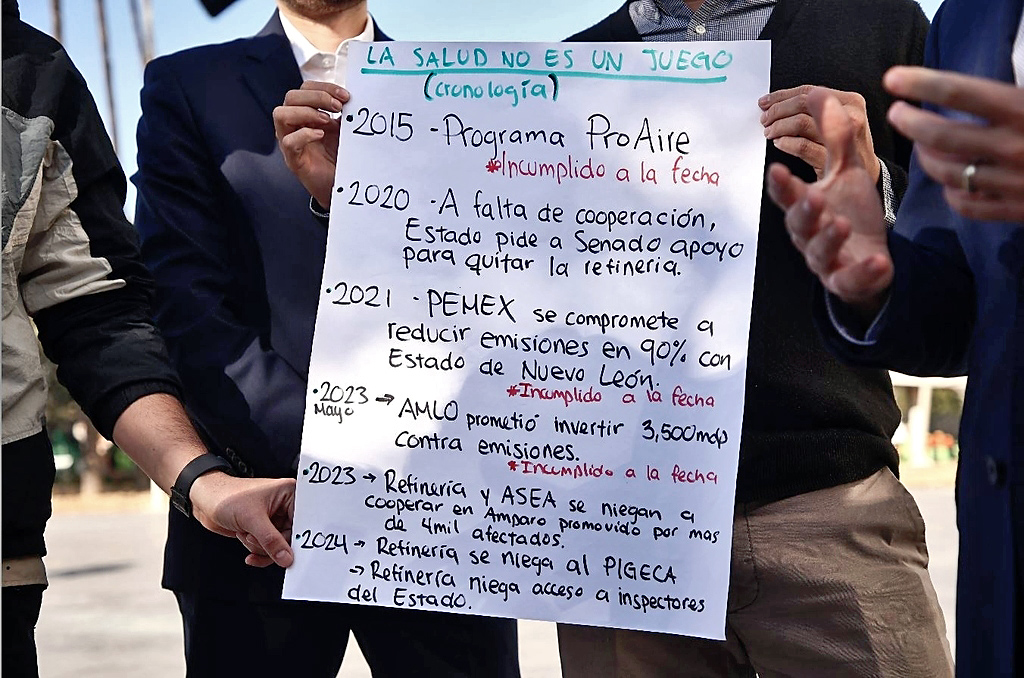 LA SALUD NO ES UN JUEGO
(cronología)
•2015 -Programa ProAire
*Incumplido a la fecha
•2020 -A falta de cooperación,
Estado pide a Senado apoyo
para quitar la refineria.
•2021 - PEMEX se compromete a
reducir emisiones en 90% con
Estado de Nuevo León.
*Incumplido a la fecha
•2023 → AMLO prometió invertir 3,500mdp
Mayo
contra emisiones.
*Incumplido a la fecha
•2023 → Refinería y ASEA se niegan a
cooperar en Amparo promovido por mas
de 4mil afectados.
•2024 → Refinería se niega al PIGECA
→ Refinería niega acceso a inspectores
del Estado.